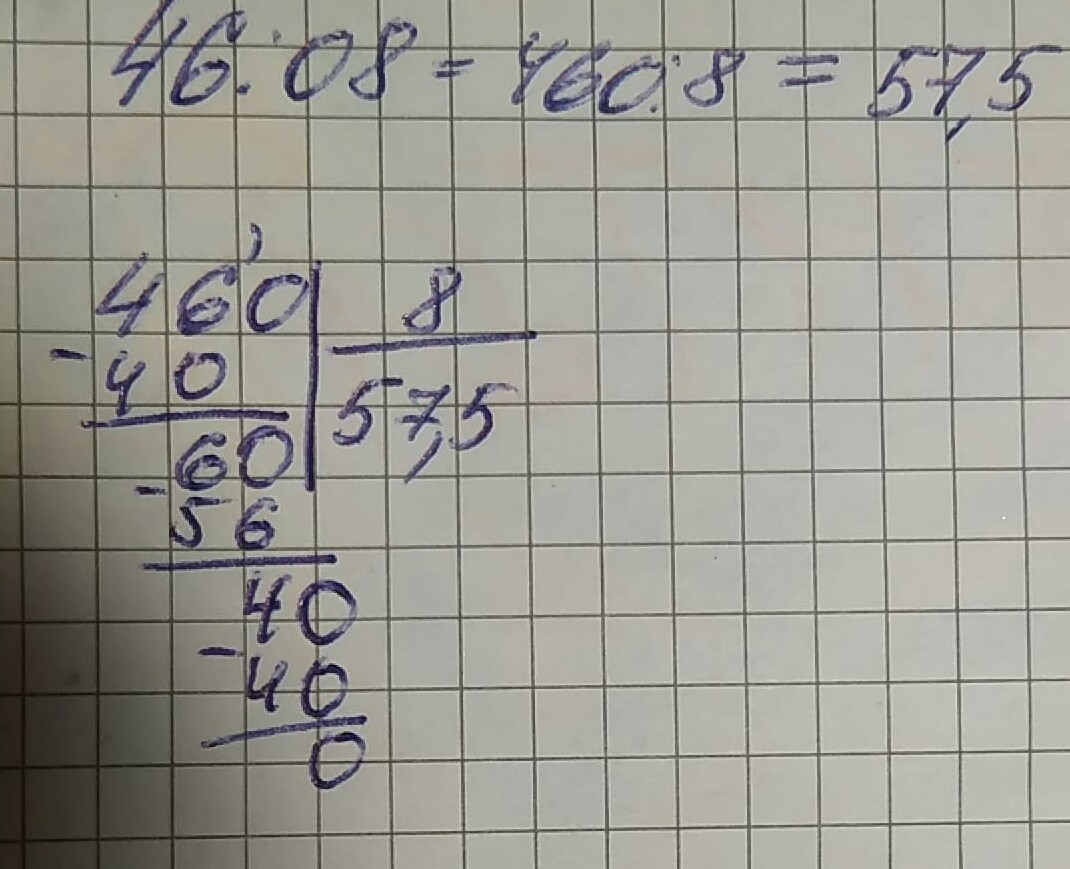 46:08=460:8=57,5
460 8
-40 57,5
60
-56
40
-40
0